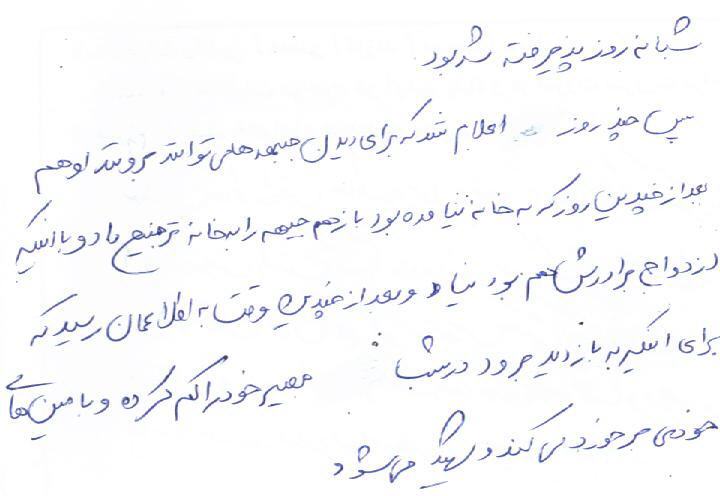 شبانه روز پذیرفته شد بود
پس چند روز اعلام شد که برای دیدن جبهه می توانند بروند او هم
بعد از چندین روز که به خانه نیامده بود باز هم جبهه را به خانه ترجیح داد و با اینکه
ازدواج برادرش هم بود نیامد و بعد از چندین وقت به اطلاعمان رسید که
برای اینکه به بازدید میرود در شب مسیر خود را گم کرده و با مین های
خودی برخورد می کند و شهید می شود